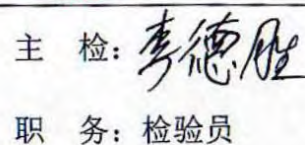 主 检：李德胜
职 务：检验员